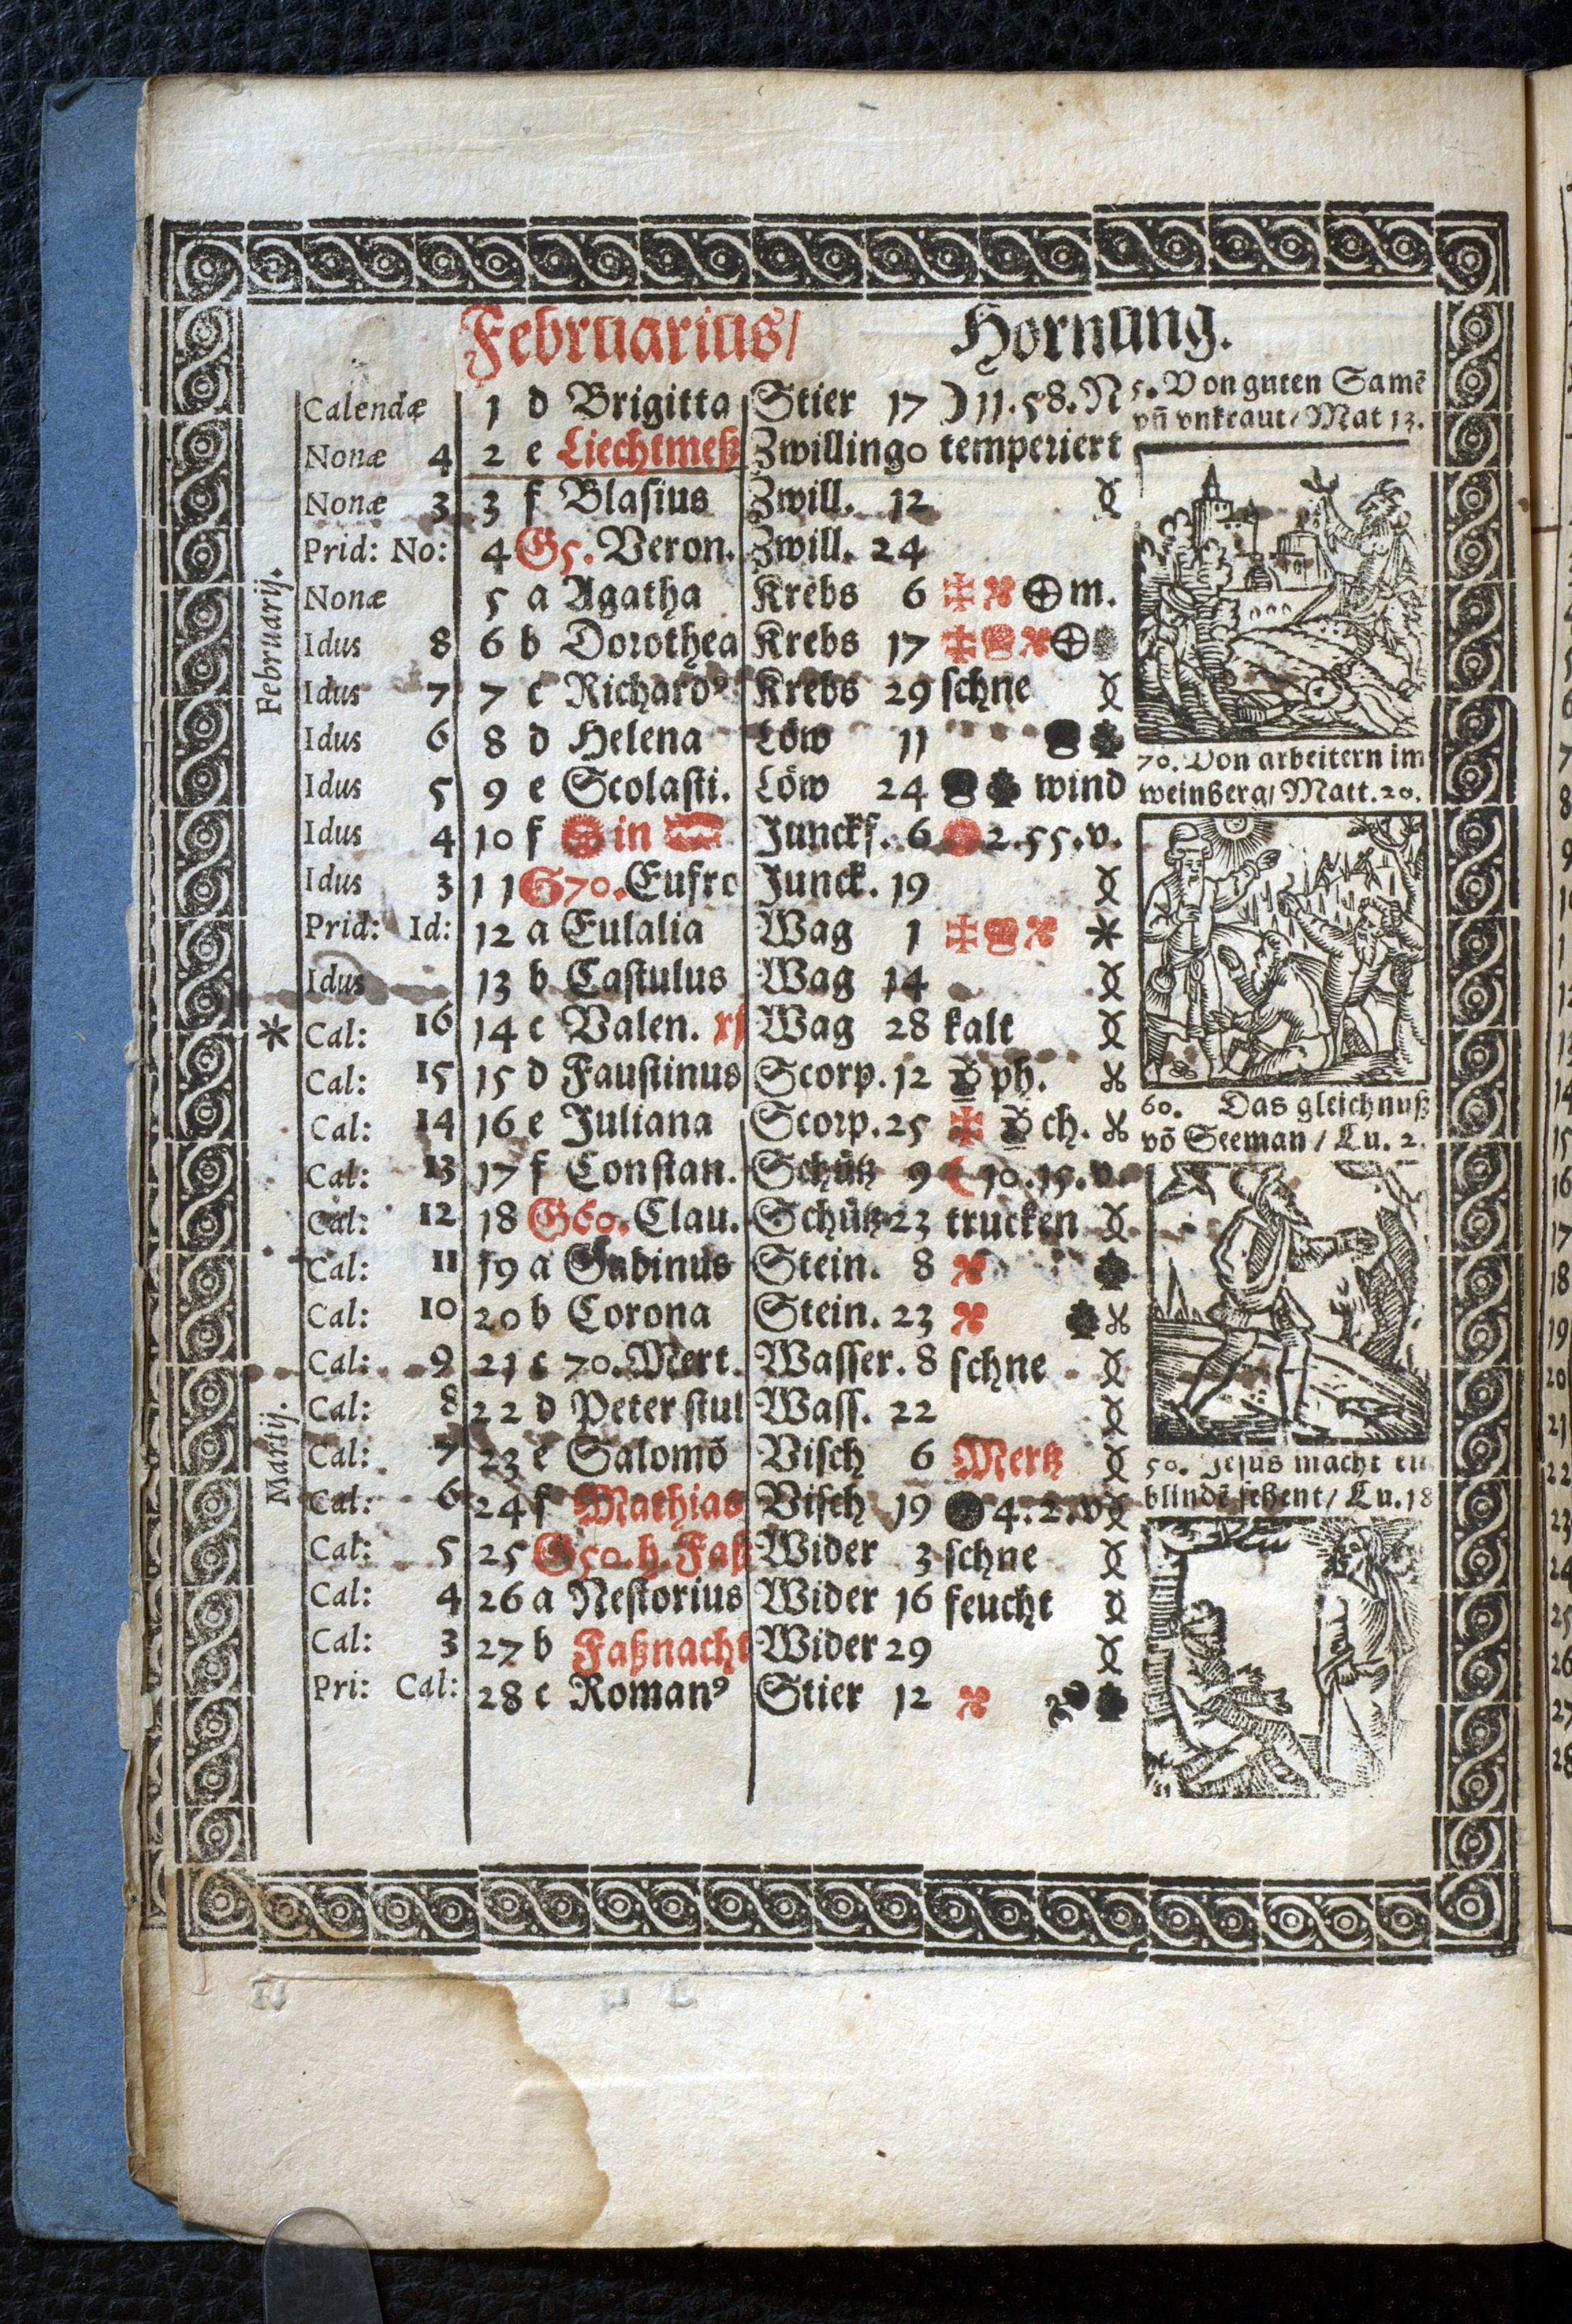 Februarius/ Hornung.
Calendæ 1 d Brigitta Stier 17 ☽ 11.58.N
Nonæ 4 2 e Liechtmeß Zwilling 0 temperiert
Nonæ 3 3 f Blasius Zwill. 12
Prid: No: 4 G5. Veron. Zwill. 24
Nonæ 5 a Agatha Krebs 6 m.
Idus 8 6 b Dorothea Krebs 17
Idus 7 7 c Richardꝰ Krebs 29 schne
Idus 6 8 d Helena Löw 11
Idus 5 9 e Scolasti. Löw 24 wind
Idus 4 10 f in Junckf. 6 2.55.v.
Idus 3 11 G70. Eufro Junck. 19
Prid: Id: 12 a Eulalia Wag 1 *
Idus 13 b Castulus Wag 14
* Cal: 16 14 c Valen. Wag 28 kalt
Cal: 15 15 d Faustinus Scorp. 12 ph.
Cal: 14 16 e Juliana Scorp. 25 ch.
Cal: 13 17 f Constan. Schütz 9 ☾ 10.15.v.
Cal: 12 18 G60. Clau. Schütz 23 trucken
Cal: 11 19 a Gabinus Stein. 8
Cal: 10 20 b Corona Stein. 23
Cal: 9 21 c 70. Mert. Wasser. 8 schne
Cal: 8 22 d Peter stul Wass. 22
Cal: 7 23 e Salomō Visch 6 Mertz
Cal: 6 24 f Mathias Visch 19 4.2.v
Cal: 5 25 G50. h. Faß Wider 3 schne
Cal: 4 26 a Nestorius Wider 16 feucht
Cal: 3 27 b Faßnacht Wider 29
Pri: Cal: 28 c Romanꝰ Stier 12
Februarij.
Martij.
5. Von guten Samē
vñ vnkraut/ Mat 13.
70. Von arbeitern im
weinberg/ Matt. 20.
60. Das gleichnuß
vō Seeman / Lu. 2.
50. Jesus macht ein
blindē sehent/ Lu. 18